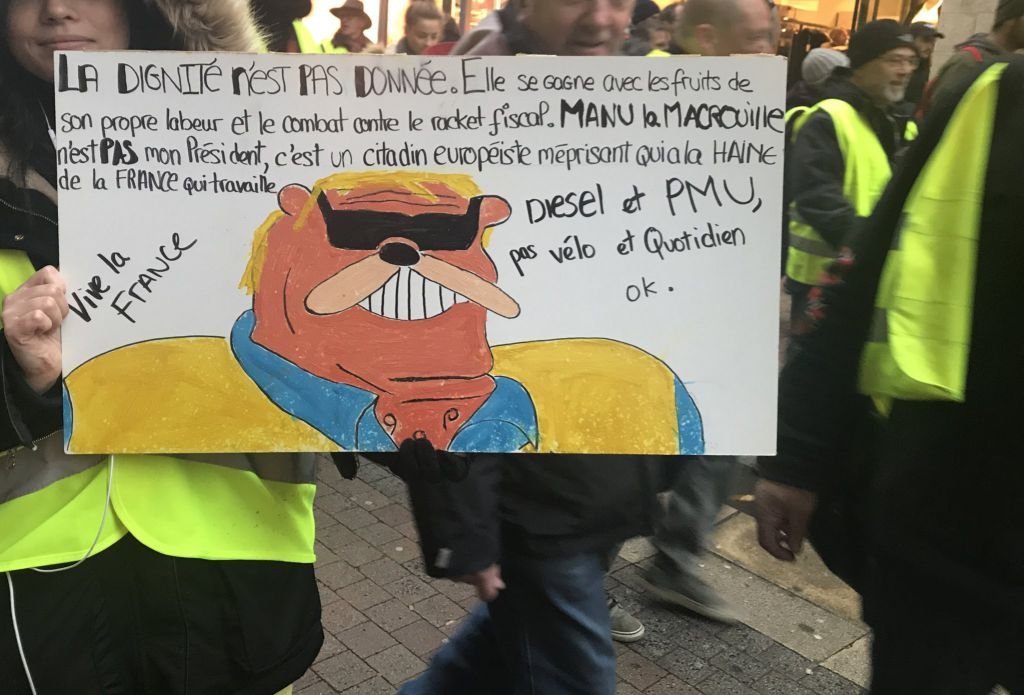 LA DIGNITÉ N'EST PAS DONNÉE. Elle se gagne avec les fruits de
son propre labeur et le combat contre le racket fiscal. MANU la MACROUille
n'est PAS mon Président, c'est un citadin européiste méprisant qui a la HAINE
de la FRANCE qui travaille
DIESEL et PMU,
pas vélo et Quotidien
OK.
Vive la
FRANCE